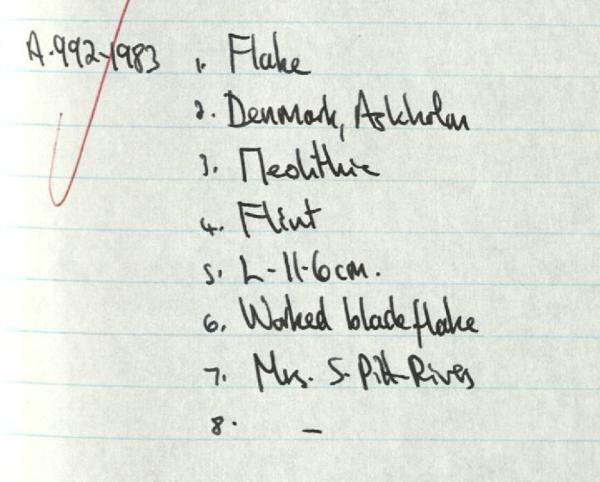 A.992-1983 1. Flake
2. Denmark, Askholm
3. Neolithic
4. Flint
5. L-11·6cm.
6. Worked blade flake
7. Mrs. S. Pitt-Rivers
8. –